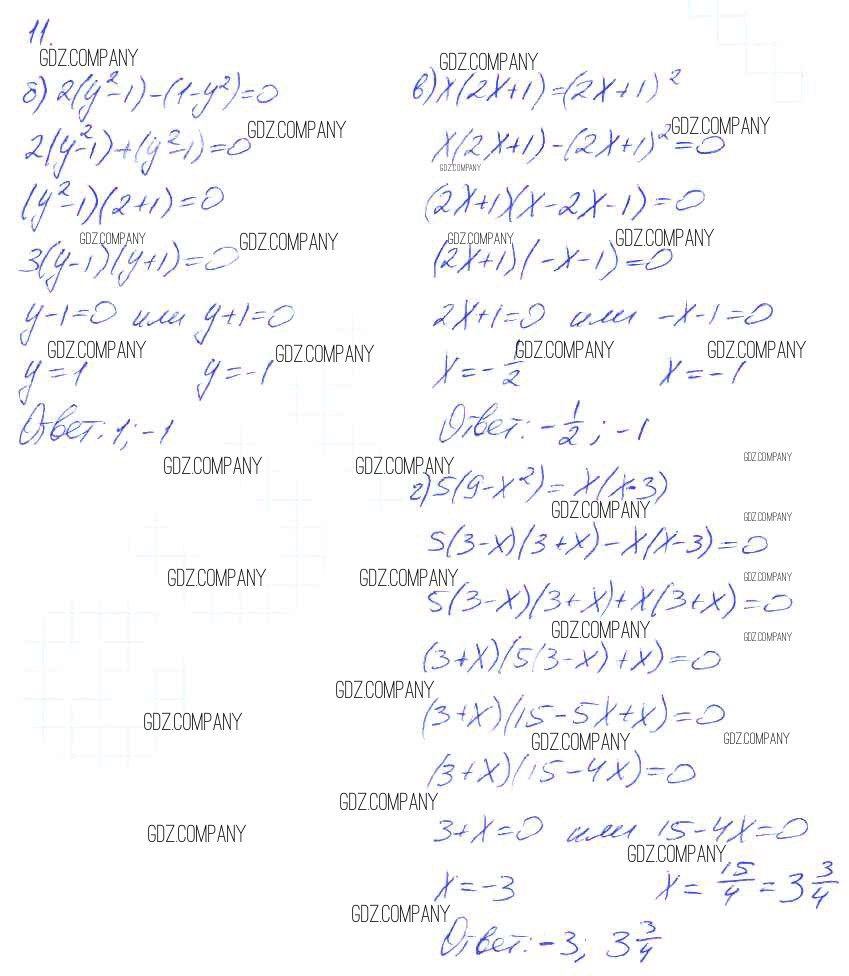 11.
GDZ.COMPANY
б) 2(y²-1)-(1-y²)=0
GDZ.COMPANY
2(y²-1)+(y²-1)=0
(y²-1)(2+1)=0
GDZ.COMPANY
GDZ.COMPANY
3(y-1)(y+1)=0
y-1=0 или y+1=0
GDZ.COMPANY
GDZ.COMPANY
y=1 y=-1
Ответ: 1; -1
GDZ.COMPANY
GDZ.COMPANY
GDZ.COMPANY
GDZ.COMPANY
GDZ.COMPANY
GDZ.COMPANY
GDZ.COMPANY
GDZ.COMPANY
GDZ.COMPANY
GDZ.COMPANY
GDZ.COMPANY
в) x(2x+1)=(2x+1)²
GDZ.COMPANY
x(2x+1)-(2x+1)²=0
GDZ.COMPANY
(2x+1)(x-2x-1)=0
GDZ.COMPANY
GDZ.COMPANY
(2x+1)(-x-1)=0
2x+1=0 или -x-1=0
GDZ.COMPANY
GDZ.COMPANY
x=-1/2 x=-1
Ответ: -1/2; -1
GDZ.COMPANY
г) 5(9-x²)=x(x-3)
GDZ.COMPANY
GDZ.COMPANY
5(3-x)(3+x)-x(x-3)=0
GDZ.COMPANY
5(3-x)(3+x)+x(3+x)=0
GDZ.COMPANY
GDZ.COMPANY
(3+x)(5(3-x)+x)=0
(3+x)(15-5x+x)=0
GDZ.COMPANY
GDZ.COMPANY
(3+x)(15-4x)=0
3+x=0 или 15-4x=0
GDZ.COMPANY
x=-3 x=15/4=3 3/4
Ответ: -3; 3 3/4